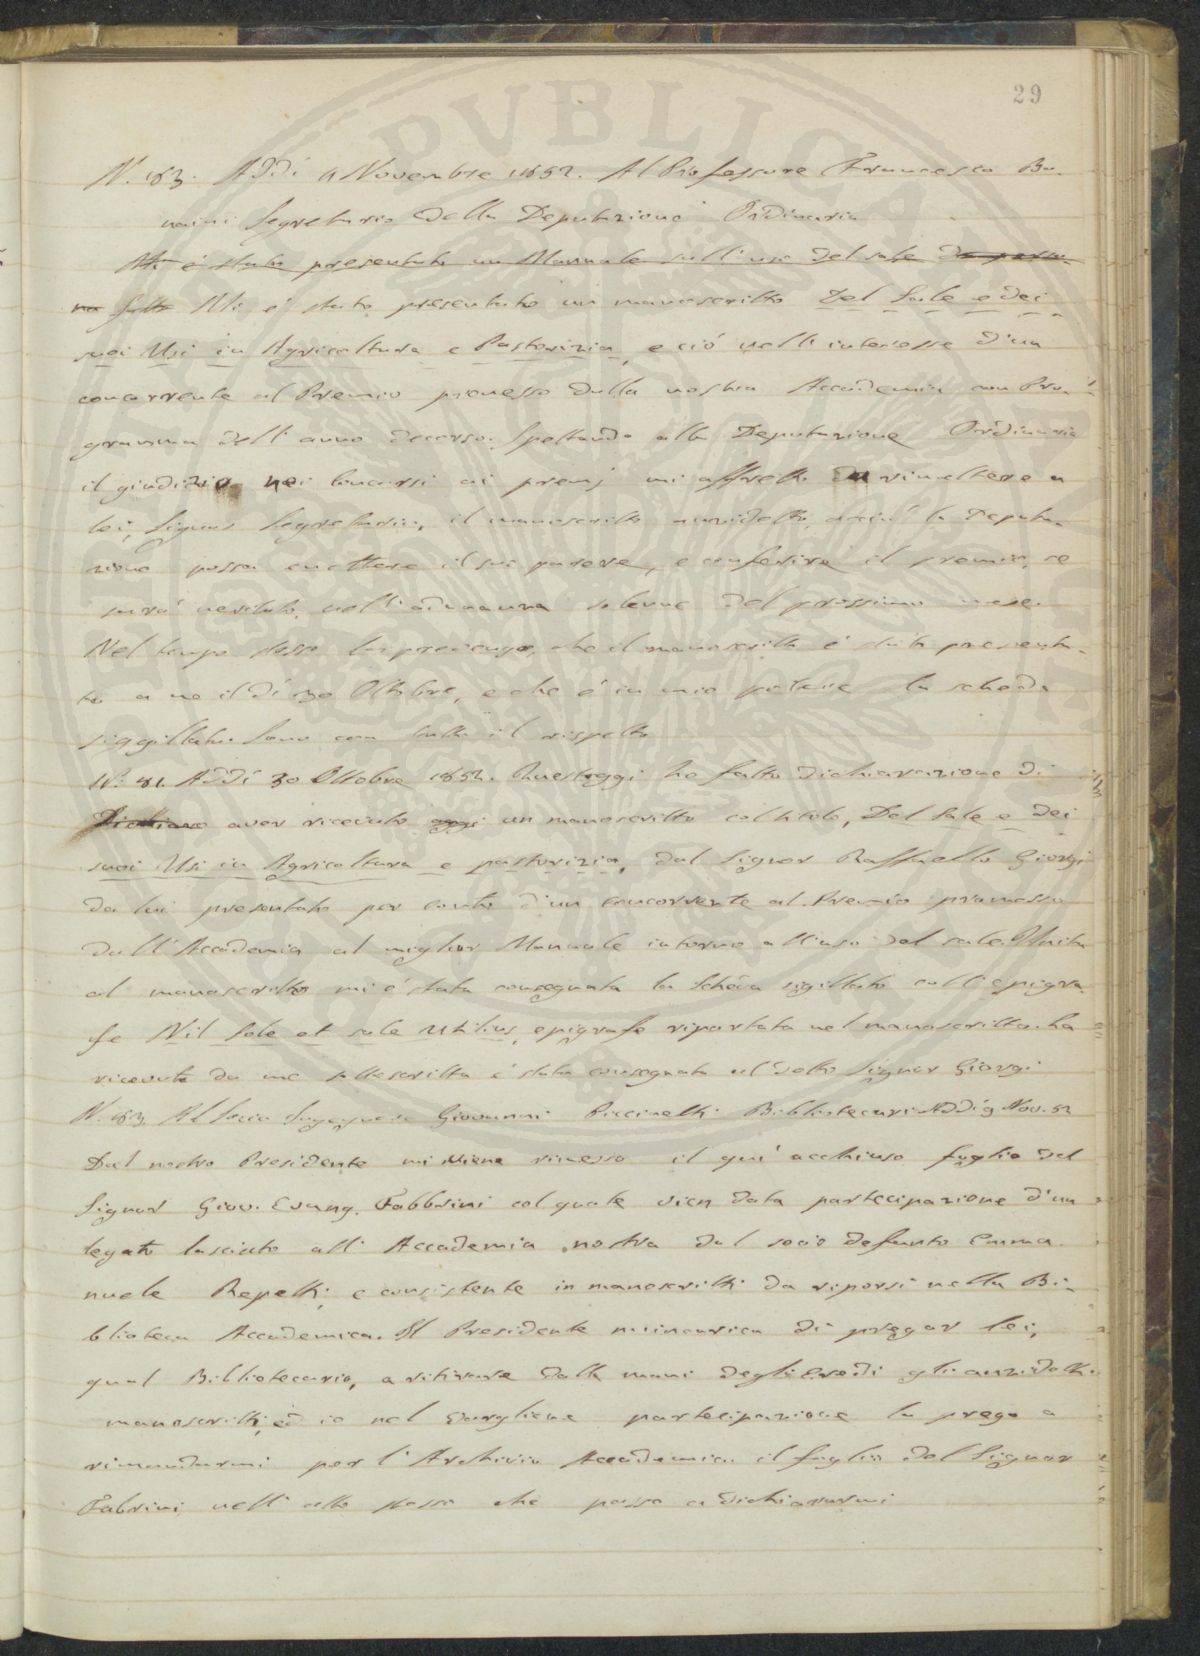 29
N. 183. Addì 9 Novembre 1852. Al Professore Francesco Bo-
naini Segretario della Deputazione Ordinaria
Mi è stato presentato un Manuale sull'uso del sale da
fatto Mi è stato presentato un manoscritto Del Sale e dei
suoi Usi in Agricoltura e Pastorizia, e ciò nell'interesse d'un
concorrente al Premio promesso dalla nostra Accademia con Pro-
gramma dell'anno decorso. Spettando alla Deputazione Ordinaria
il giudizio nei concorsi ai premj mi affretto a rimettere a
lei, Signor Segretario, il manoscritto anzidetto, acciò la Deputa-
zione possa emettere il suo parere, e conferire il premio, se
sarà meritato, nell'adunanza solenne del prossimo mese.
Nel tempo stesso la prevengo, che il manoscritto è stato presenta-
to a me il dì 30 Ottobre, e che è in mio potere la scheda
siggillata. Sono con tutto il rispetto
N. 81. Addì 30 Ottobre 1852. Quest'oggi ho fatto dichiarazione di
Dichiaro aver ricevuto oggi un manoscritto col titolo, Del Sale e dei
suoi Usi in Agricoltura e pastorizia, dal Signor Raffaello Giorgi
da lui presentato per conto d'un concorrente al Premio promesso
dall'Accademia al miglior Manuale intorno all'uso del sale. Unita
al manoscritto mi è stata consegnata la Scheda sigillata coll'epigra-
fe Nil Sole et sale utilius, epigrafe riportata nel manoscritto. La
ricevuta da me sottoscritta è stata consegnata al detto Signor Giorgi
N. 183. Al Socio Ingegnere Giovanni Piccinelli Bibliotecari Addì 9 Nov. 52
Dal nostro Presidente mi viene rimesso il quì acchiuso foglio del
Signor Giov. Evang. Fabbrini col quale vien data partecipazione d'un
legato lasciato all'Accademia nostra dal socio defunto Emma-
nuele Repetti, e consistente in manoscritti da riporsi nella Bi-
blioteca Accademica. Il Presidente m'incarica di pregar lei,
qual Bibliotecario, a ritirare dalle mani degli Eredi gli anzidetti
manoscritti, ed io nel dargliene partecipazione la prego a
rimandarmi per l'Archivio Accademico il foglio del Signor
Fabrini, nell'atto stesso che passo a dichiararmi